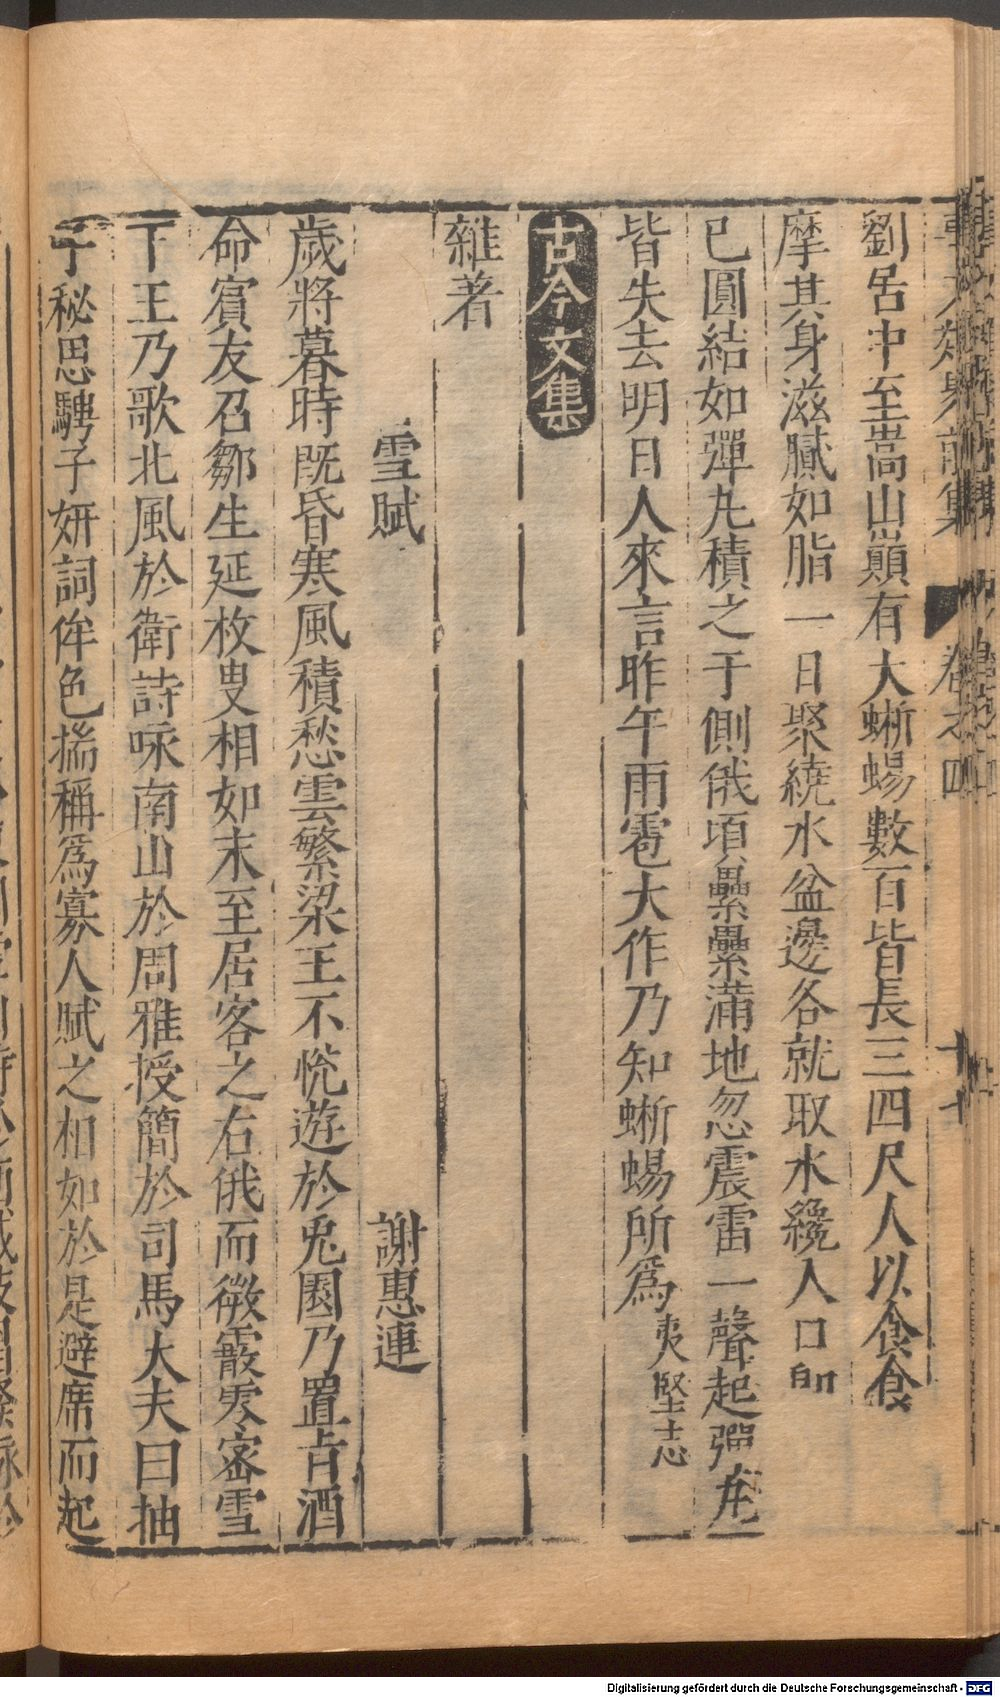 事文類聚前集 卷之四
劉居中至嵩山巔有大蜥蜴數百皆長三四尺人以食食
摩其身滋膩如脂一日聚繞水盆邊各就取水纔入口即
已圓結如彈丸積之于側俄頃纍纍滿地忽震雷一聲起彈丸
皆失去明日人來言昨午雨雹大作乃知蜥蜴所為夷堅志
古今文集
雜著
雪賦 謝惠連
歲將暮時既昏寒風積愁雲繁梁王不悅遊於兎園乃置旨酒
命賓友召鄒生延枚叟相如末至居客之右俄而微霰零密雪
下王乃歌北風於衛詩咏南山於周雅授簡於司馬大夫曰抽
子秘思騁子妍詞侔色揣稱為寡人賦之相如於是避席而起
Digitalisierung gefördert durch die Deutsche Forschungsgemeinschaft - DFG